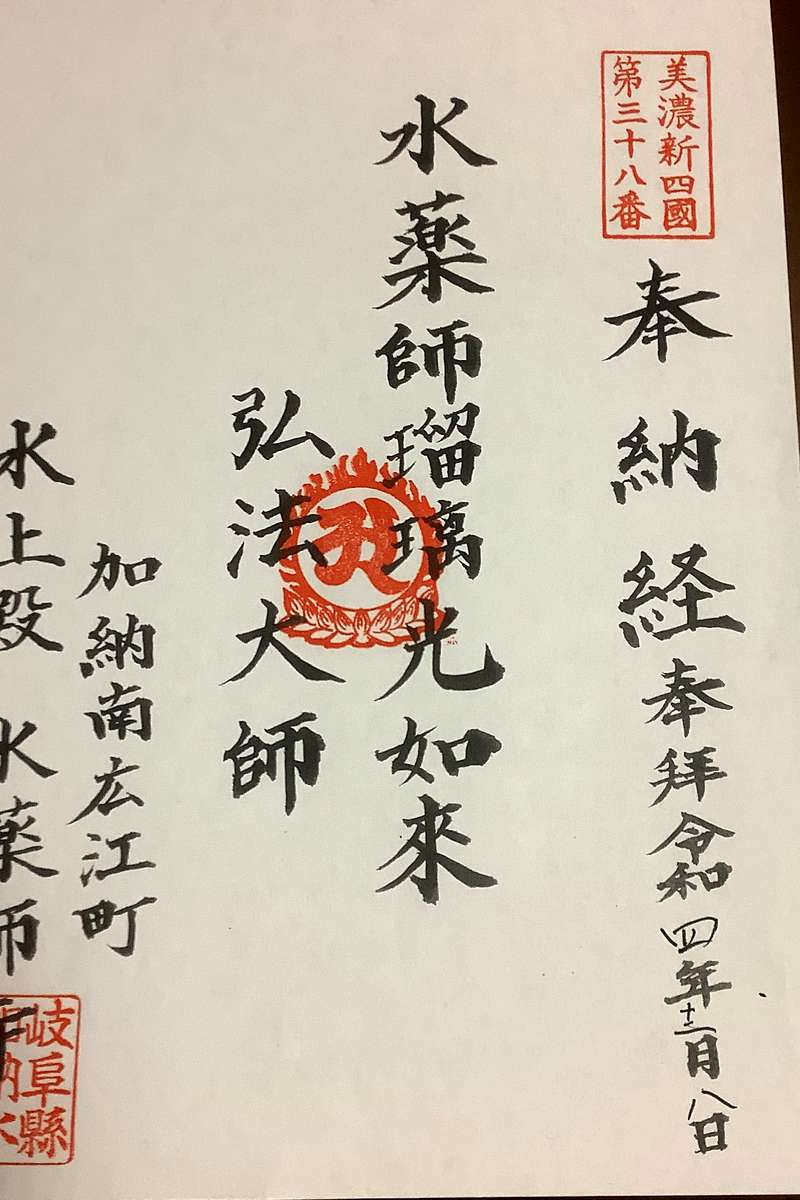 美濃新四國
第三十八番
奉納経 奉拜 令和四年十二月八日
水薬師瑠璃光如來
弘法大師
加納南広江町
水上殿 水薬師
岐阜縣